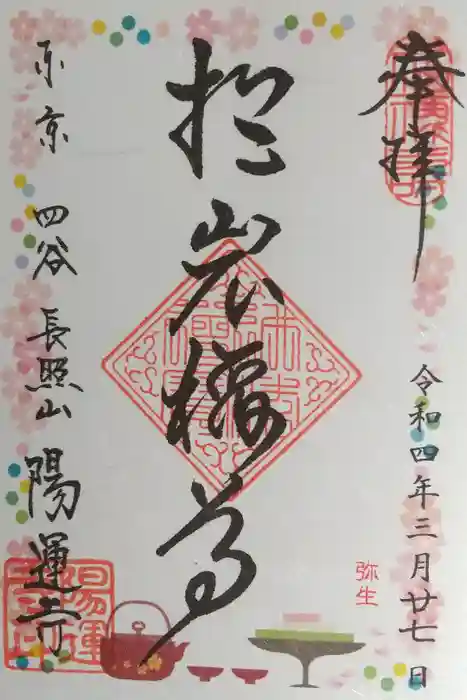 奉拝
令和四年三月廿七日
弥生
於岩
東京 四谷 長照山 陽運寺